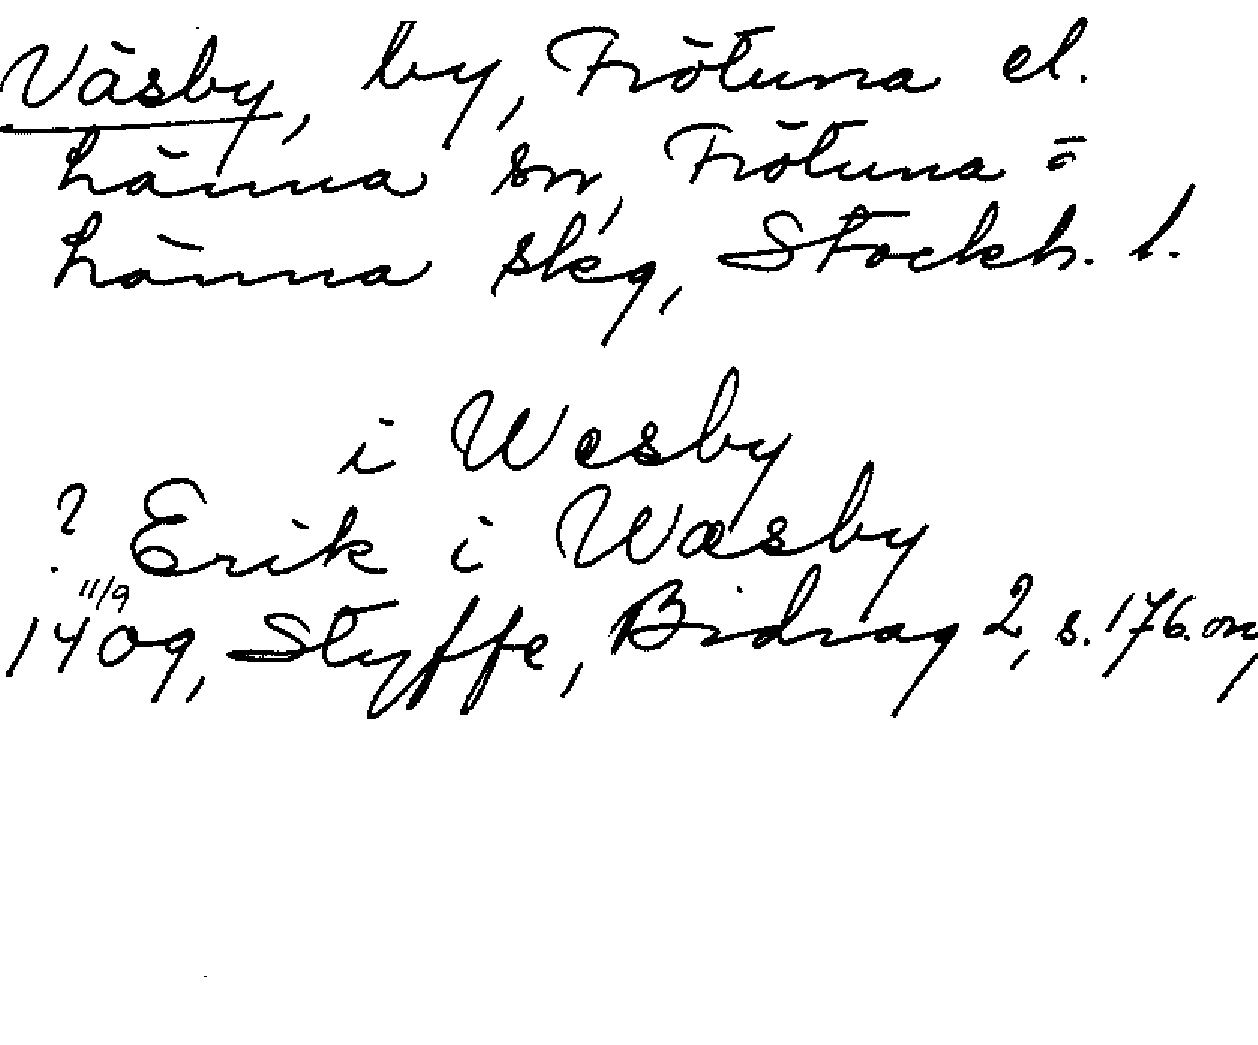 Väsby, by, Frötuna el.
Länna sn, Frötuna o
Länna skg, Stockh. l.
i Wesby
? Erik i Wæsby
11/9
1409, Styffe, Bidrag 2, s. 176. or,